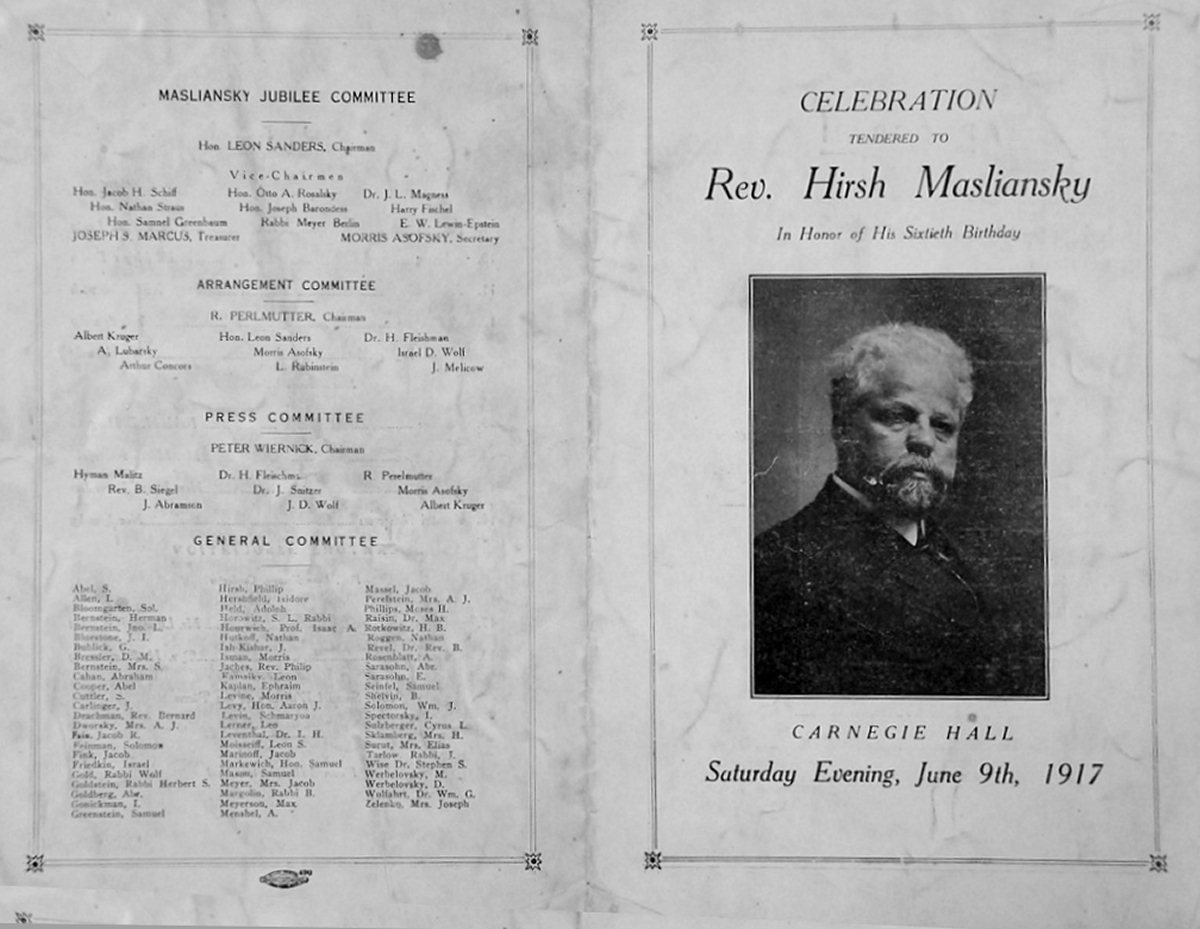 MASLIANSKY JUBILEE COMMITTEE
Hon. LEON SANDERS, Chairman
Vice-Chairmen
Hon. Jacob H. Schiff Hon. Otto A. Rosalsky Dr. J. L. Magness
Hon. Nathan Straus Hon. Joseph Barondess Harry Fischel
Hon. Samnel Greenbaum Rabbi Meyer Berlin E. W. Lewin-Epstein
JOSEPH S. MARCUS, Treasurer MORRIS ASOFSKY, Secretary
ARRANGEMENT COMMITTEE
R. PERLMUTTER, Chairman
Albert Kruger Hon. Leon Sanders Dr. H. Fleishman
A. Lubarsky Morris Asofsky Israel D. Wolf
Arthur Concors L. Rubinstein J. Melicow
PRESS COMMITTEE
PETER WIERNICK, Chairman
Hyman Malitz Dr. H. R. Perelmutter
Rev. B. Siegel Dr. J. Snitzer Morris Asofsky
J. Abramson J. D. Wolf Albert Kruger
GENERAL COMMITTEE
Abel, S. Hirsh, Phillip Massel, Jacob
Allen, I. Hershfield, Isidore Perelstein, Mrs. A. J.
Bloomgarten, Sol. Held, Adolph Phillips, Moses H.
Bernstein, Herman Horowitz, S. L. Rabbi Raisin, Dr. Max
Bernstein, Jno. L. Hourwich, Prof. Isaac A. Rotkowitz, H. B.
Bluestone, J. I. Hutkoff, Nathan Roggen, Nathan
Bublick, G. Ish-Kishor, J. Revel, Dr. Rev. B.
Bressler, D. M. Isman, Morris Rosenblatt, A.
Bernstein, Mrs. S. Jaches, Rev. Philip Sarasohn, Abr.
Cahan, Abraham Kamaiky, Leon Sarasohn, E.
Cooper, Abel Kaplan, Ephraim Seinfel, Samuel
Cuttler, S. Levine, Morris Shelvin, B.
Carlinger, J. Levy, Hon. Aaron J. Solomon, Wm. J.
Drachman, Rev. Bernard Levin, Schmaryoa Spectorsky, I.
Dworsky, Mrs. A. J. Lerner, Leo Sulzberger, Cyrus L.
Fais, Jacob R. Leventhal, Dr. I. H. Sklamberg, Mrs. H.
Feinman, Solomon Moisseiff, Leon S. Surut, Mrs. Elias
Fink, Jacob Marinoff, Jacob Tarlow, Rabbi, J.
Friedkin, Israel Markewich, Hon. Samuel Wise Dr. Stephen S.
Gold, Rabbi Wolf Mason, Samuel Werbelovsky, M.
Goldstein, Rabbi Herbert S. Meyer, Mrs. Jacob Werbelovsky, D.
Goldberg, Abr. Margolin, Rabbi B. Wolfahrt, Dr. Wm. G.
Gonickman, I. Meyerson, Max Zelenko, Mrs. Joseph
Greenstein, Samuel Menshel, A.
CELEBRATION
TENDERED TO
Rev. Hirsh Masliansky
In Honor of His Sixtieth Birthday
CARNEGIE HALL
Saturday Evening, June 9th, 1917